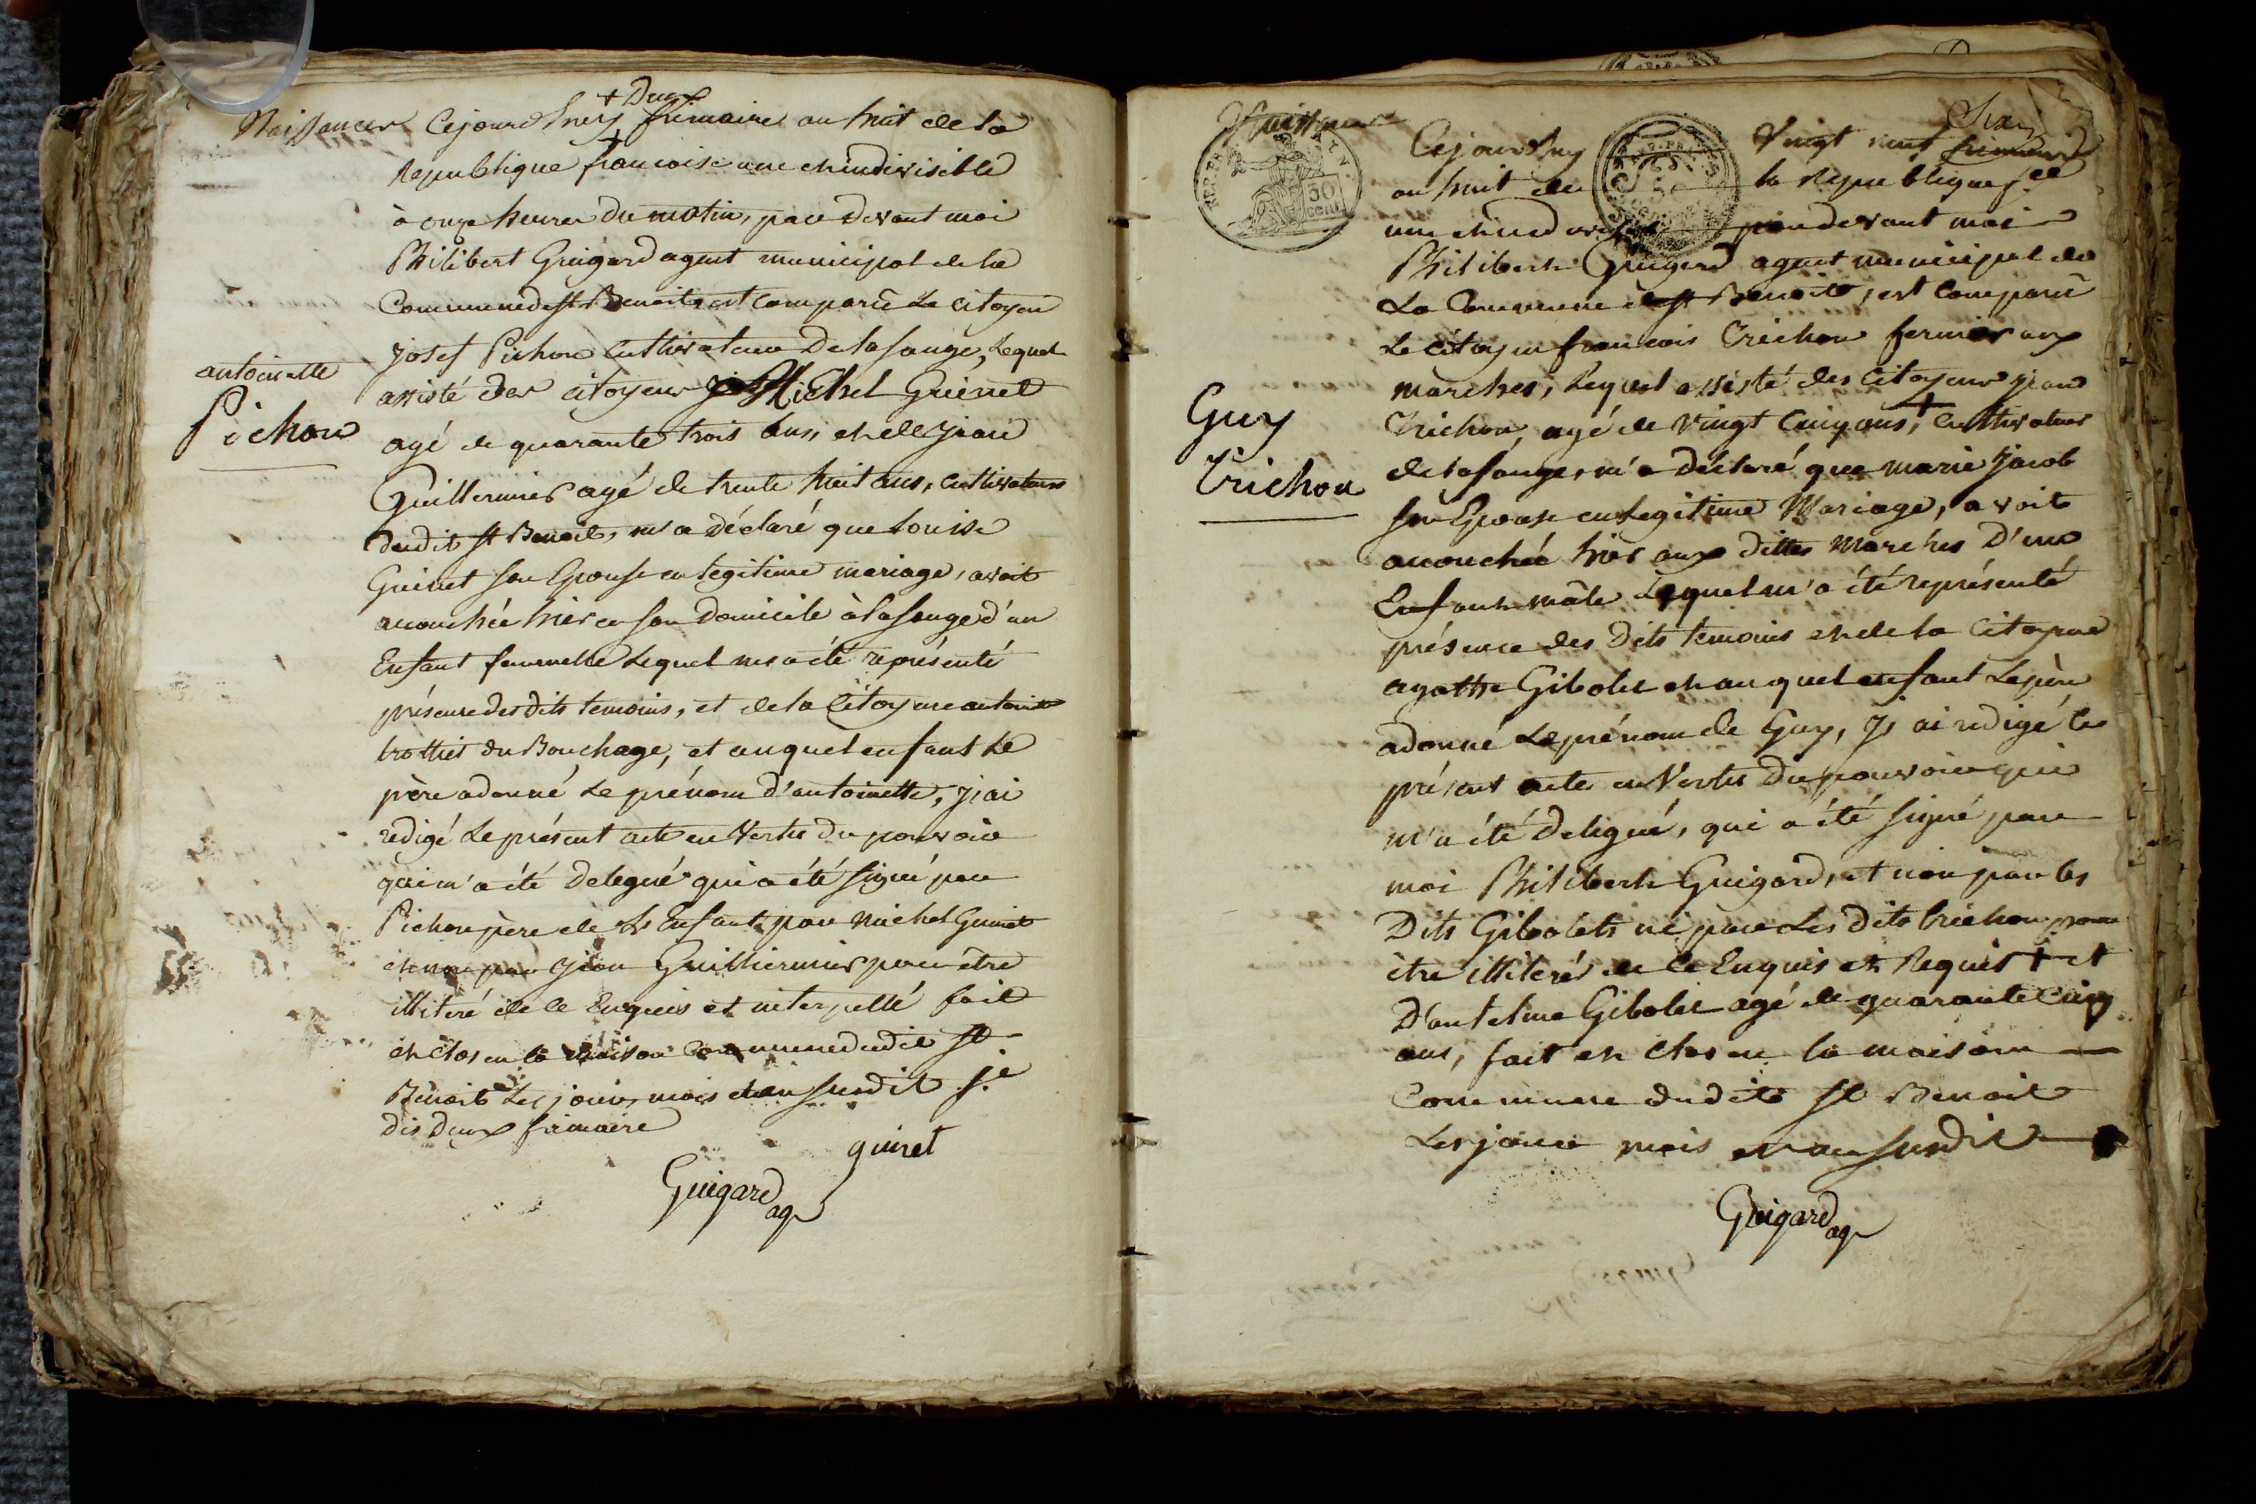 + Deux
Naissances Cejourdhuy frimaire an huit de la
Republique francoise une et indivisible
à onze heures du matin, par devant moi
Philibert Guigard agent municipal de la
Commune de st Benoit, est comparû Le citoyen
Josef Pichon Cultivateur De la sauge, Lequel
assisté des citoyens Michel Guinet
agé de quarante trois ans, et de Jean
Guillermier agé de trente huit ans, cultivateurs
dudit st Benoit, m'a déclaré que Louise
Guinet son Epouse en legitime mariage, avoit
acouchée hier en son Domicile à la sauge d'un
Enfant femmelle Lequel m'a été représenté
présence des dits temoins, et de la Citoyene antoinette
trottiet du Bouchage, et auquel enfant Le
père a donné Le prénom d'antoinette, J'ai
redigé Le présent acte en Vertu du pouvoir
qui m'a été delegué qui a été signé par
Pichon père de L'Enfant, par michel Guinet
et non par Jean Guilliermier pour être
illiteré de ce Enquis et interpellé fait
et clos en la maison Commune dudit st
Benoit Les jour, mois et an susdit s.e
dis Deux frimaire
guinet
Guigard ag
antoinette
Pichon
Six
Naissance
REP. FRA.
50
cent
Cejourdhuy Vingt neuf frimaire
an huit de la Republique f.se
une et indivisible par devant moi
Philibert Guigard agent municipal de
La Commune de st Benoit, est comparû
Le citoyen francois Trichon fermier aux
marches, Lequel assisté des Citoyens Jean
Trichon, agé de Vingt Cinq ans, + Cultivateur
de la sauge, m'a déclaré que marie Jacob
son Epouse en Legitime Mariage, avoit
acouchée hier aux dittes Marches D'un
Enfant mâle Lequel m'a été représenté
présence des Dits temoins et de la Citoyene
agathe Gibolet et auquel enfant Le père
a donné Le prénom de Guy, J'ai redigé le
présent acte en Vertu du pouvoir qui
m'a été Deligué, qui a été signé par
moi Philibert Guigard, et non par les
Dits Gibolets ni par Les dits trichon pour
être illiterés de ce Enquis et Requis + et
D'antelme Gibolet agé de quarante Cinq
ans, fait et clos en la maison
Commune dudit st Benoit
Les jour mois et an susdit
Guigard ag
Guy
Trichon